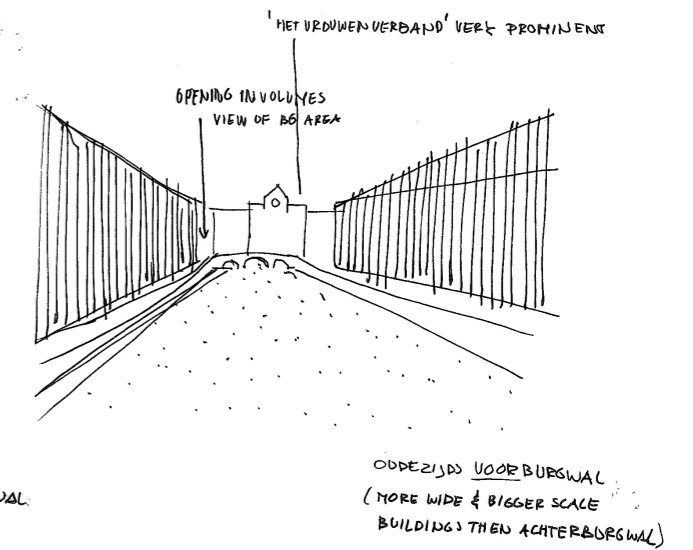 'HET VROUWENVERBAND' VERY PROMINENT
OPENING IN VOLUMES
VIEW OF BG AREA
OUDEZIJDS VOORBURGWAL
(MORE WIDE & BIGGER SCALE
BUILDINGS THEN ACHTERBURGWAL)